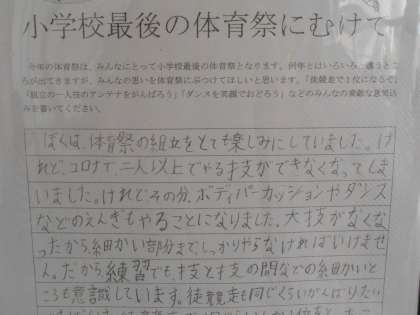 小学校最後の体育祭にむけて
今年の体育祭は、みんなにとって小学校最後の体育祭となります。例年とはいろいろ、違うとこ
ろが出てきますが、みんなの思いを体育祭にぶつけてほしいと思います。「徒競走で１位になるぞ」
「組立の一人技のアンテナをがんばろう」「ダンスを笑顔でおどろう」などのみんなの素敵な意気込
みを書いてください。
ぼくは、体育祭の組立をとても楽しみにしていました。け
れど、コロナで、二人以上でやる技ができなくなってしま
いました。けれどその分、ボディパーカッションやダンス
などのえんぎもやることになりました。大技がなくな
ったから細かい部分までしっかりやらなければいけませ
ん。だから、練習でも、技と技の間などの細かいと
ころも意識しています。徒競走も同じくらいがんばりたい